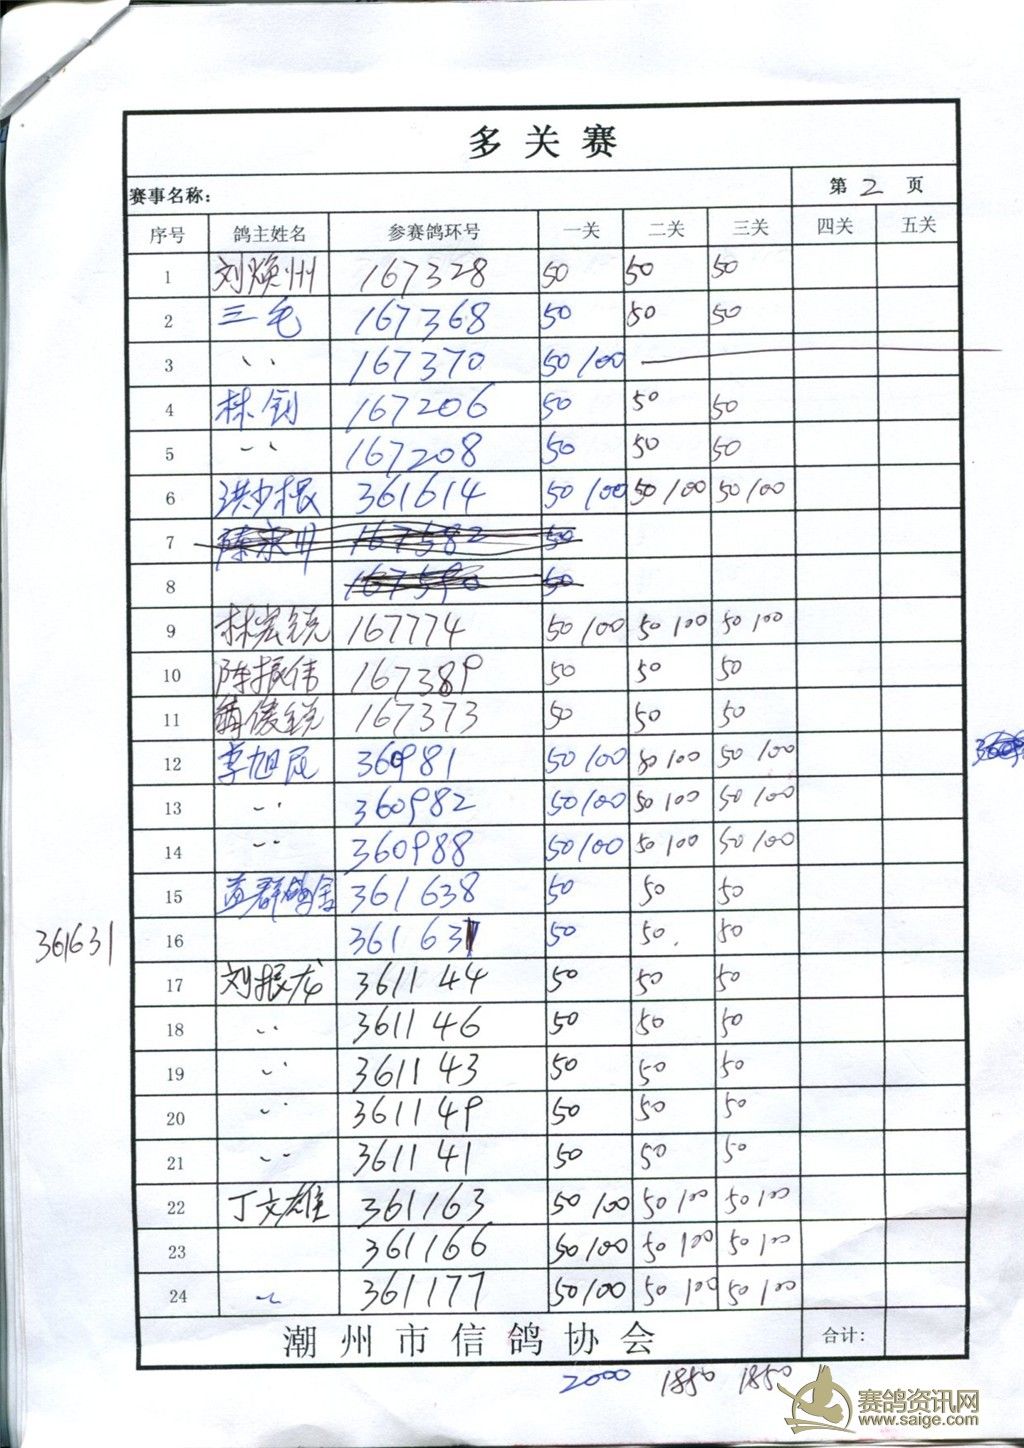 多关赛
赛事名称: 第 2 页
序号 鸽主姓名 参赛鸽环号 一关 二关 三关 四关 五关
1 刘焕州 167328 50 50 50
2 三毛 167368 50 50 50
3 〃 167370 50/100
4 林钊 167206 50 50 50
5 〃 167208 50 50 50
6 洪少根 361614 50/100 50/100 50/100
7 167582 50
8 167590 50
9 林宏锐 167774 50/100 50 100 50 100
10 陈振伟 167389 50 50 50
11 俊锐 167373 50 50 50
12 李旭 360981 50/100 50 100 50/100
13 〃 360982 50/100 50 100 50/100
14 〃 360988 50/100 50 100 50/100
15 益群鸽舍 361638 50 50 50
361631 16 361631 50 50. 50
17 刘振龙 361144 50 50 50
18 〃 361146 50 50 50
19 〃 361143 50 50 50
20 〃 361149 50 50 50
21 〃 361141 50 50 50
22 丁文雄 361163 50 100 50 100 50 100
23 361166 50/100 50 100 50 100
24 〃 361177 50/100 50 100 50 100
潮州市信鸽协会 合计:
2000 1850 1850
赛鸽资讯网
www.saige.com